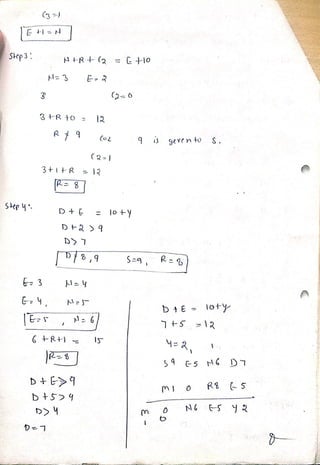 C3=1
E+1=N
Step3: N+R+C2 = E+10
N=3 E=2
8 C2=0
3+R+0 = 12
R ≠ 9 coz 9 is given to S.
C2=1
3+1+R = 12
R=8
Step 4: D+E = 10+Y
D+2>9
D>7
D≠8,9 S=9, R=8
E=3 N=4
E=4, N=5
E=5, N=6
6+R+1 = 15
R=8
D+E>9
D+5>9
D>4
D=7
D+E = 10+y
7+5 =12
Y=2, 1
S9 E5 N6 D7
M1 O R8 E5
M O N6 E5 Y2
1 0